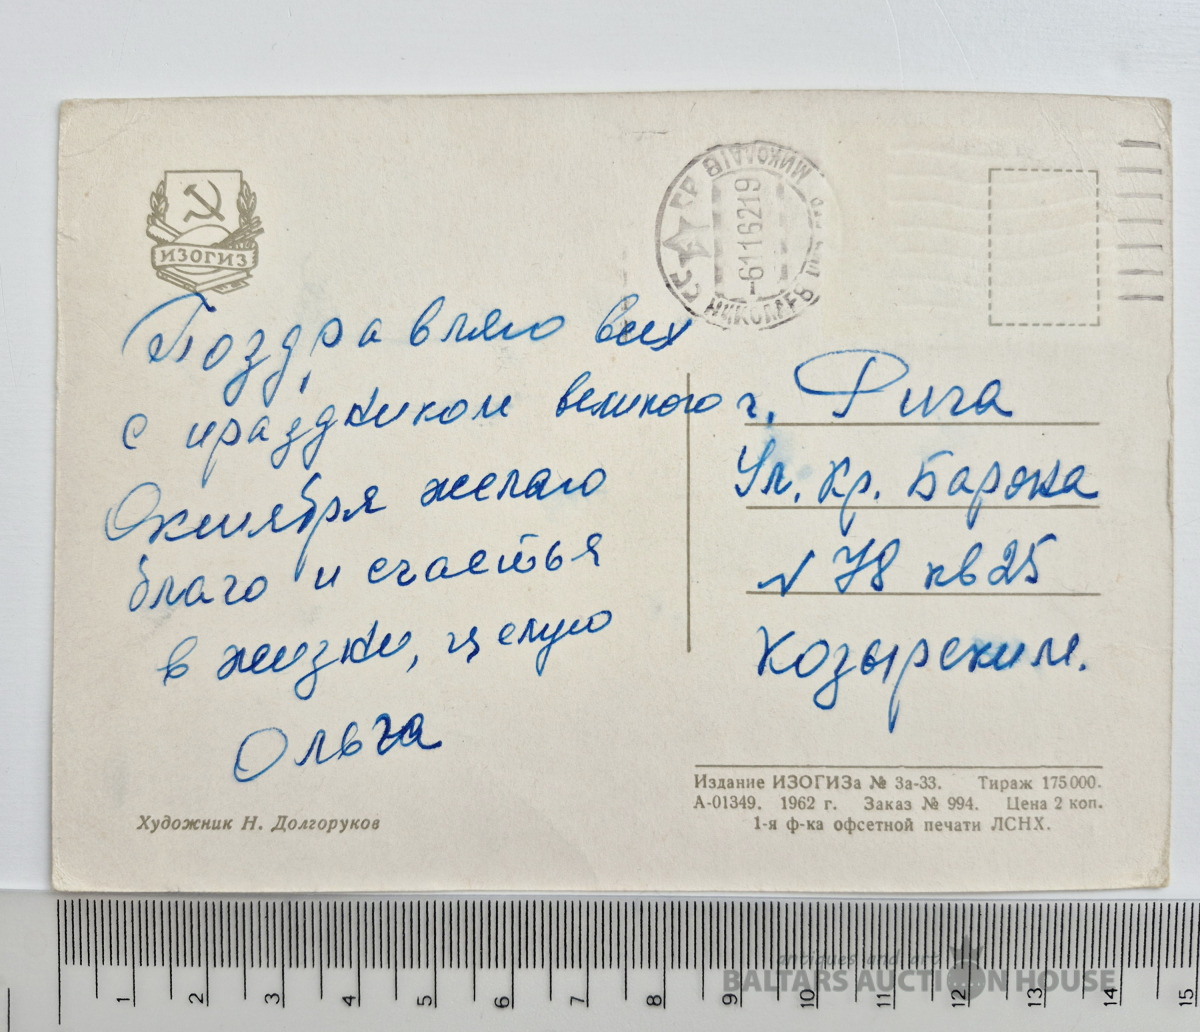 ИЗОГИЗ
Поздравляю всех
с праздником великого
Октября желаю
благо и счастья
в жизни, целую
Ольга
Художник Н. Долгоруков
СССР МИКОЛАЇВ
-61116219
НИКОЛАЕВ
г. Рига
Ул. Кр. Барона
N 78 кв 25
Козырским.
Издание ИЗОГИЗа № 3а-33. Тираж 175000.
А-01349. 1962 г. Заказ № 994. Цена 2 коп.
1-я ф-ка офсетной печати ЛСНХ.
1 2 3 4 5 6 7 8 9 10 11 12 13 14 15
antiques and art
BALTARS AUCTION HOUSE